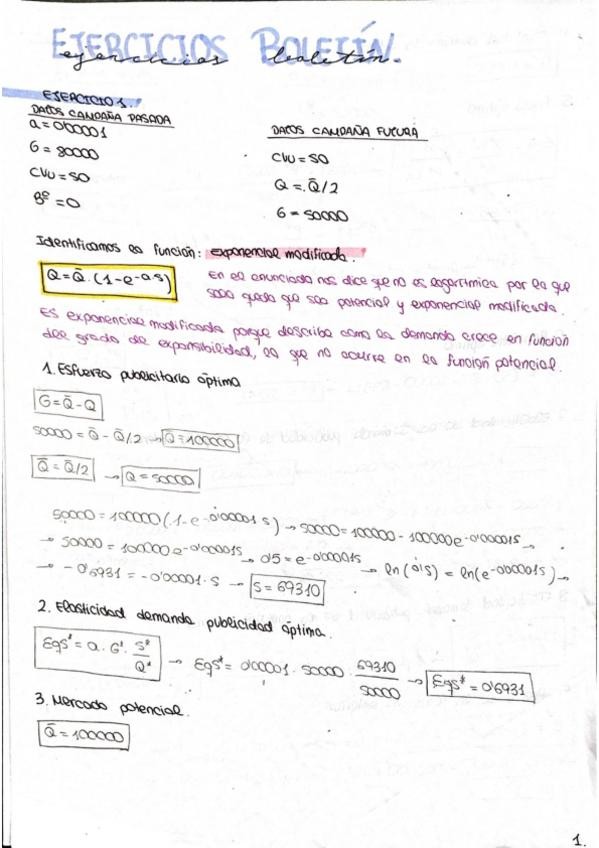 EJERCICIOS BOLETÍN
ejercicios boletín.
EJERCICIO 1.
DATOS CAMPAÑA PASADA
a = 0'00001
G = 80000
CVU = 50
Bº = 0
DATOS CAMPAÑA FUTURA
CVU = 50
Q = Q̄/2
G = 50000
Identificamos la función: exponencial modificada.
Q = Q̄ · (1-e^-a·s)
En el enunciado nos dice que no es logarítmica por lo que
solo queda que sea potencial y exponencial modificada.
Es exponencial modificada porque describe como la demanda crece en función
del grado de expansibilidad, lo que no ocurre en la función potencial.
1. Esfuerzo publicitario óptimo
G = Q̄ - Q
50000 = Q̄ - Q̄/2 → Q̄ = 100000
Q̄ = Q̄/2 → Q = 50000
50000 = 100000 (1-e^-0'00001s) → 50000 = 100000 - 100000e^-0'00001s →
→ 50000 = 100000e^-0'00001s → 0'5 = e^-0'00001s → ln(0'5) = ln(e^-0'00001s) →
→ -0'6931 = -0'00001·s → S = 69310
2. Elasticidad demanda publicidad óptima.
Eqs* = a · G* · S*/Q* → Eqs* = 0'00001 · 50000 · 69310/50000 → Eqs* = 0'6931
3. Mercado potencial.
Q̄ = 100000
1.